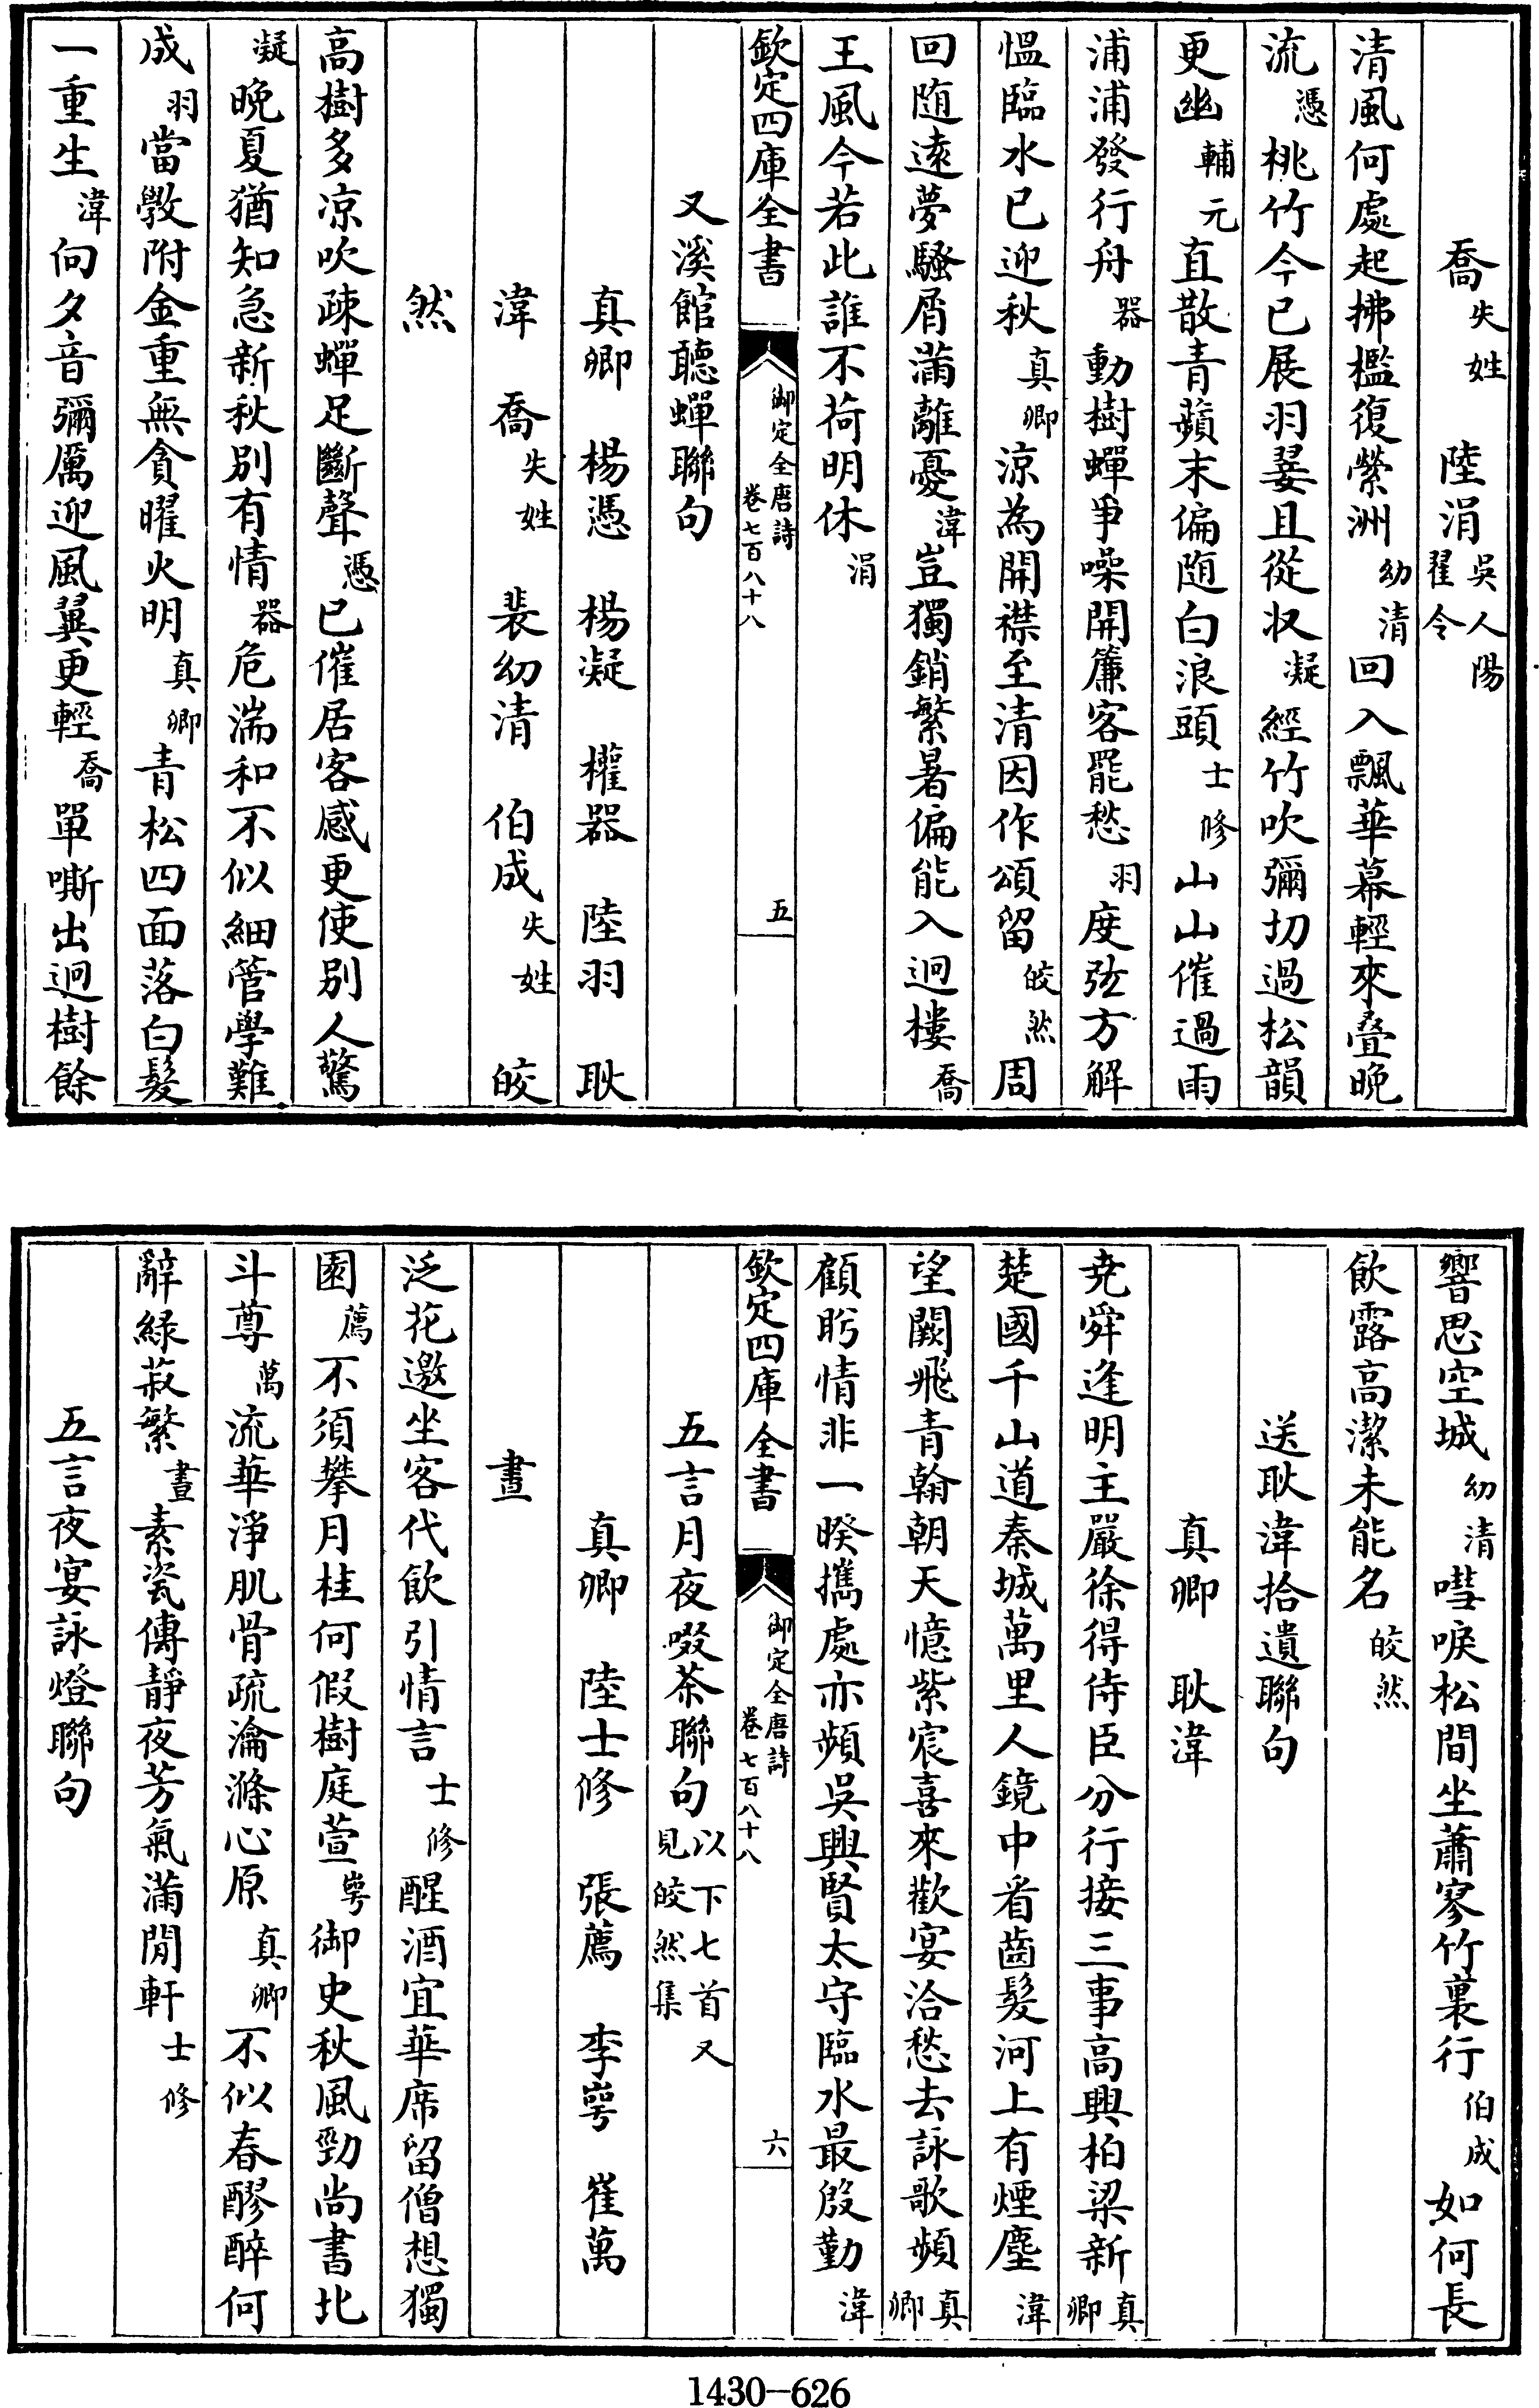 喬失姓　陸涓吳人陽翟令
清風何處起拂檻復縈洲幼清回入飄華幕輕來疊晚
流憑桃竹今已展羽翣且從収凝經竹吹彌切過松韻
更幽輔元直散青蘋末偏随白浪頭士修山山催過雨
浦浦發行舟器動樹蟬爭噪開簾客罷愁羽度弦方解
慍臨水已迎秋真卿涼為開襟至清因作頌留皎然周
回随遠夢騷屑滿離憂湋豈獨銷繁暑偏能入迥樓喬
王風今若此誰不荷明休涓
欽定四庫全書　御定全唐詩卷七百八十八　五
又溪館聽蟬聯句
真卿　楊憑　楊凝　權器　陸羽　耿
湋　喬失姓　裴幼清　伯成失姓　皎
然
高樹多凉吹疎蟬足斷聲憑已催居客感更使別人驚
凝晚夏猶知急新秋別有情器危湍和不似細管學難
成羽當斅附金重無貪曜火明真卿青松四面落白髮
一重生湋向夕音彌厲迎風翼更輕喬單嘶出迥樹餘
響思空城幼清嘒唳松間坐蕭寥竹裏行伯成如何長
飲露高潔未能名皎然
送耿湋拾遺聯句
真卿　耿湋
堯舜逢明主嚴徐得侍臣分行接三事高興柏梁新真卿
楚國千山道秦城萬里人鏡中看齒髮河上有煙塵湋
望闕飛青翰朝天憶紫宸喜來歡宴洽愁去詠歌頻真卿
顧眄情非一暌攜處亦頻吳興賢太守臨水最殷勤湋
欽定四庫全書　御定全唐詩卷七百八十八　六
五言月夜啜茶聯句以下七首又見皎然集
真卿　陸士修　張薦　李崿　崔萬
晝
泛花邀坐客代飲引情言士修醒酒宜華席留僧想獨
園薦不須攀月桂何假樹庭萱崿御史秋風勁尚書北
斗尊萬流華淨肌骨疏瀹滌心原真卿不似春醪醉何
辭緑菽繁晝素瓷傳靜夜芳氣滿閒軒士修
五言夜宴詠燈聯句
1430-626